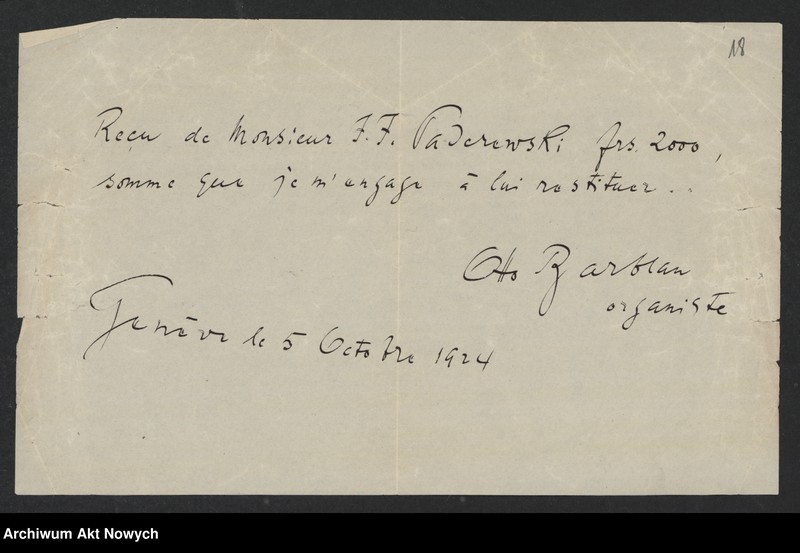 18
Reçu de Monsieur J. J. Paderewski frs. 2000,
somme que je m'engage à lui restituer..
Otto Barblan
organiste
Genève le 5 Octobre 1924
Archiwum Akt Nowych